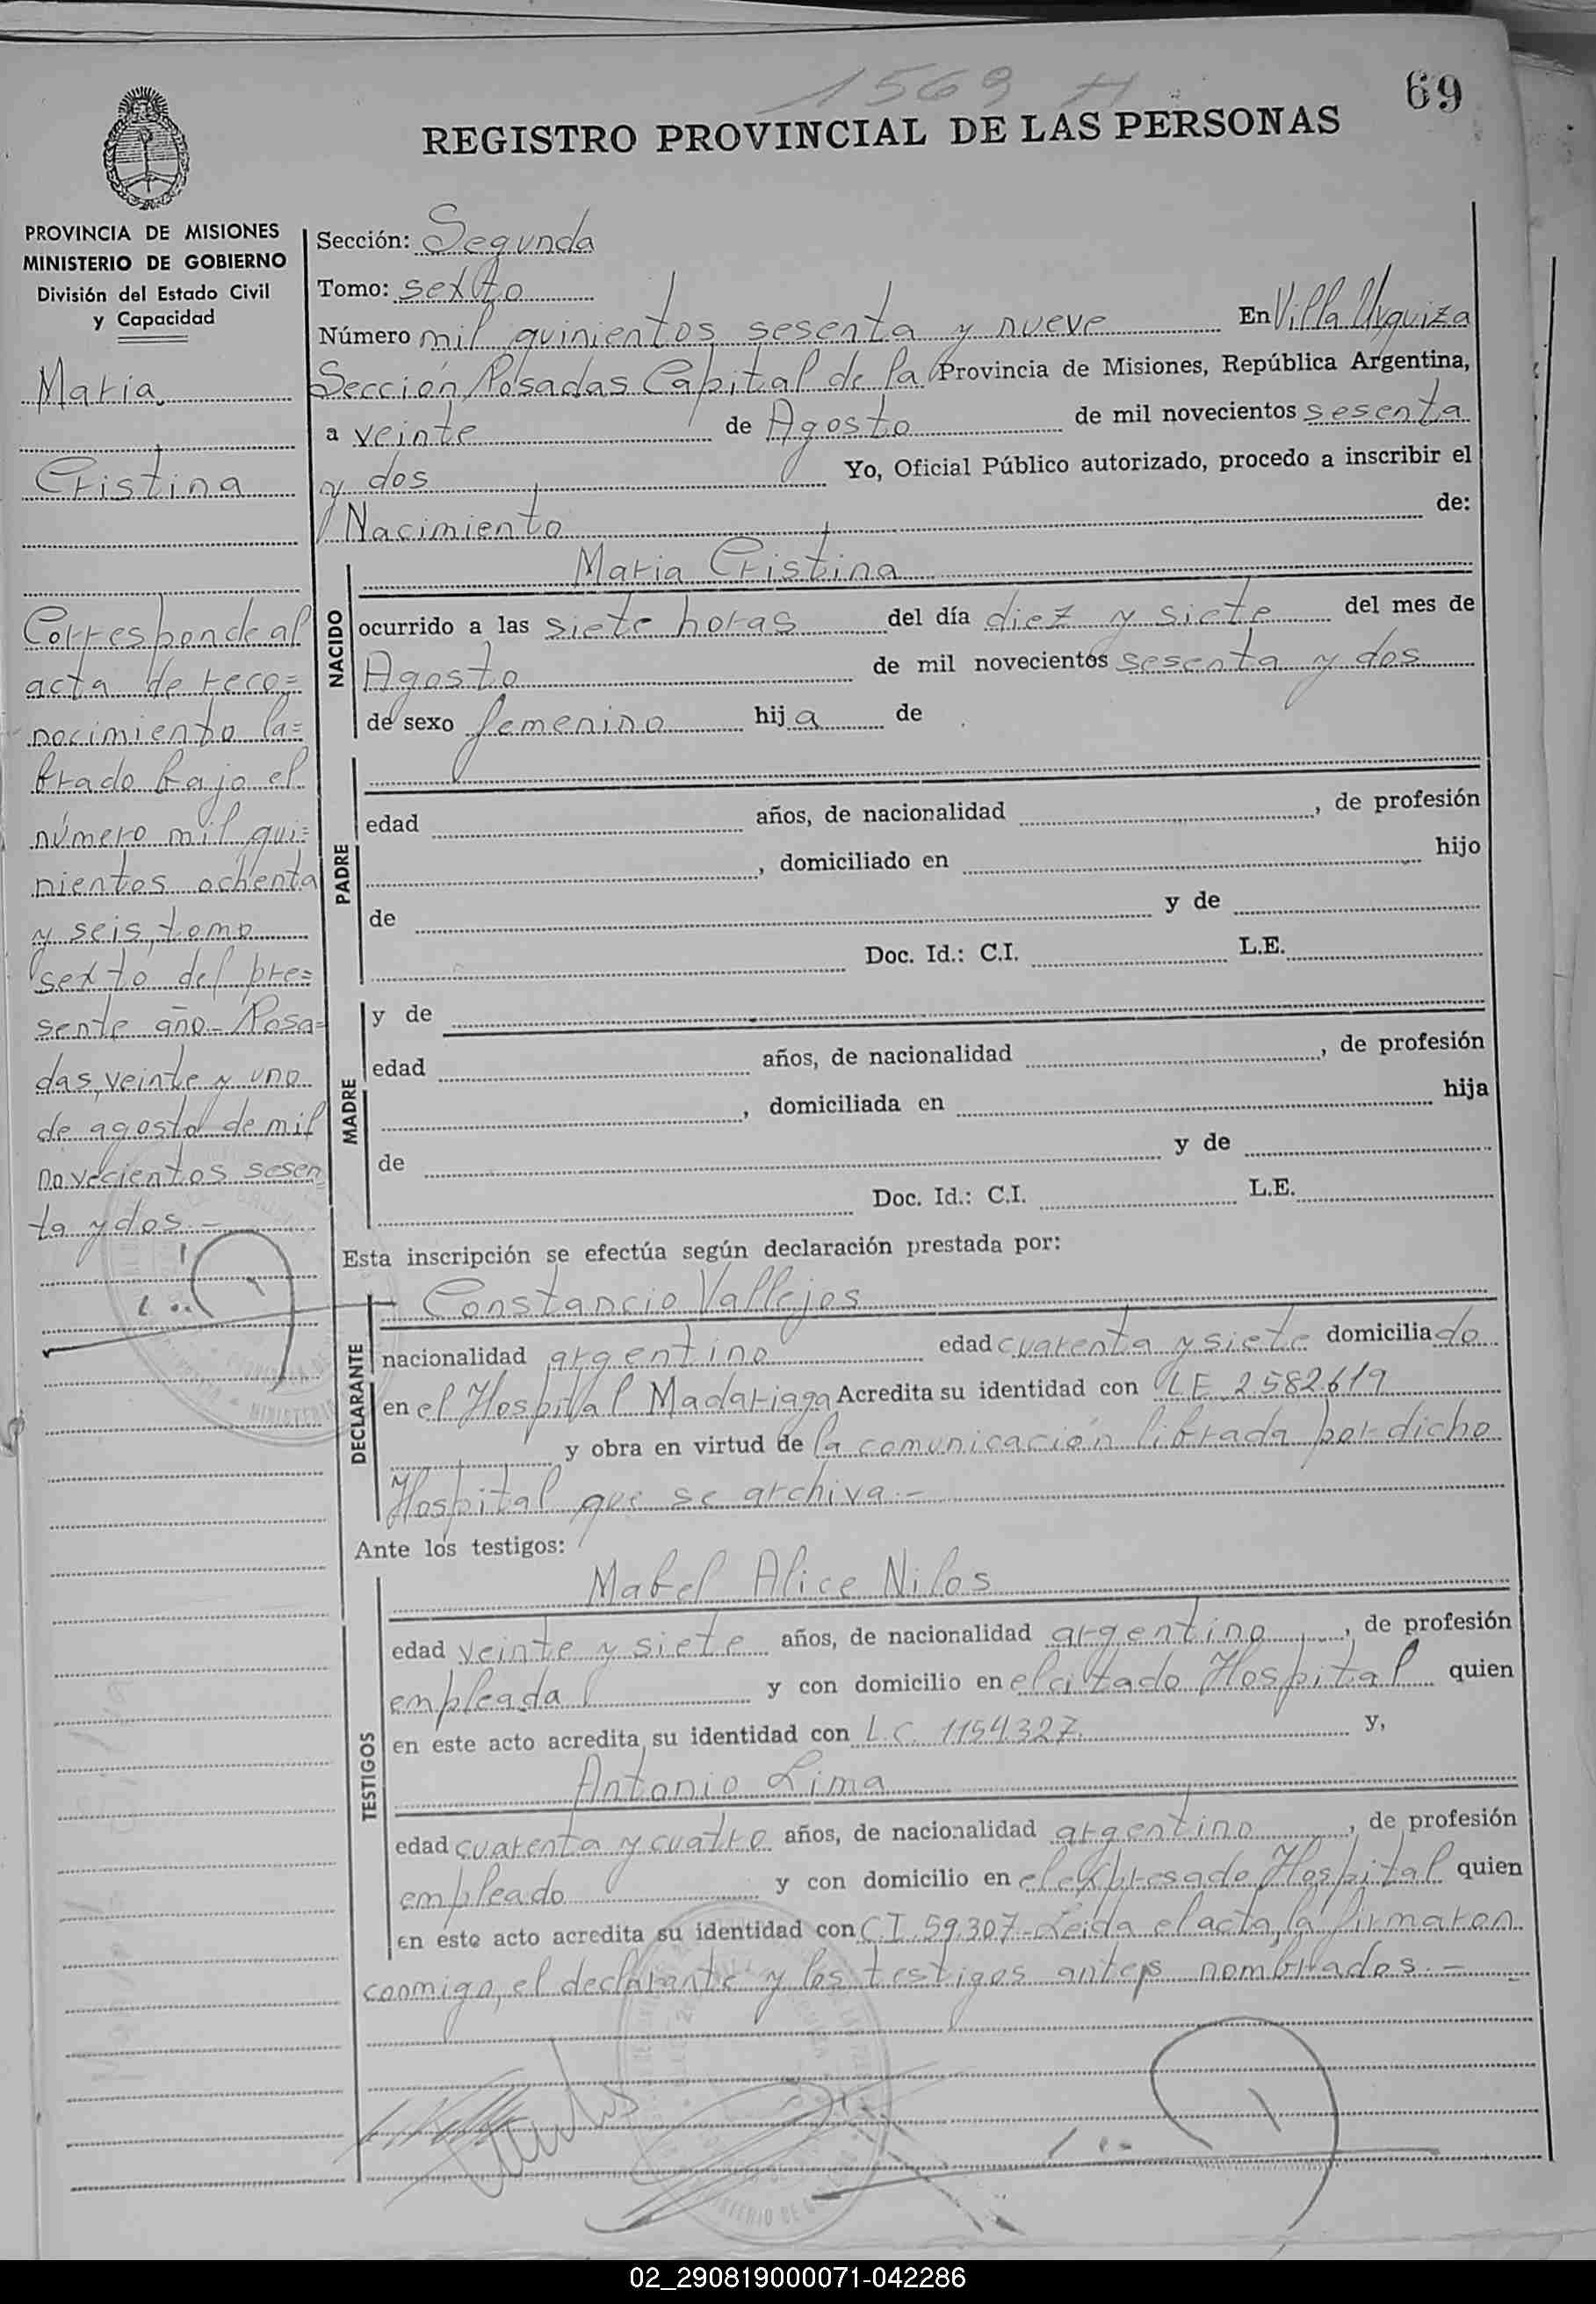 1569 H
69
REGISTRO PROVINCIAL DE LAS PERSONAS
PROVINCIA DE MISIONES
MINISTERIO DE GOBIERNO
División del Estado Civil
y Capacidad
Maria
Cristina
Corresponde al
acta de reco=
nocimiento la=
brado bajo el
número mil qui=
nientos ochenta
y seis, tomo
sexto del pre=
sente año - Posa=
das, veinte y uno
de agosto de mil
novecientos sesen
ta y dos. -
Sección: Segunda
Tomo: sexto
Número mil quinientos sesenta y nueve En Villa Urquiza
Sección Posadas Capital de la Provincia de Misiones, República Argentina,
a veinte de Agosto de mil novecientos sesenta
y dos Yo, Oficial Público autorizado, procedo a inscribir el
Nacimiento de:
NACIDO
Maria Cristina
ocurrido a las siete horas del día diez y siete del mes de
Agosto de mil novecientos sesenta y dos
de sexo femenino hija de
PADRE
edad años, de nacionalidad , de profesión
, domiciliado en hijo
de y de
Doc. Id.: C.I. L.E.
MADRE
y de
edad años, de nacionalidad , de profesión
, domiciliada en hija
de y de
Doc. Id.: C.I. L.E.
Esta inscripción se efectúa según declaración prestada por:
DECLARANTE
Constancio Vallejos
nacionalidad argentino edad cuarenta y siete domiciliado
en el Hospital Madariaga Acredita su identidad con LE 2582619
y obra en virtud de la comunicación librada por dicho
Hospital que se archiva. -
Ante los testigos:
TESTIGOS
Mabel Alice Nilos
edad veinte y siete años, de nacionalidad argentina, de profesión
empleada y con domicilio en el citado Hospital quien
en este acto acredita su identidad con L.C. 1154327. y,
Antonio Lima
edad cuarenta y cuatro años, de nacionalidad argentino, de profesión
empleado y con domicilio en el expresado Hospital quien
en este acto acredita su identidad con C.I. 59.307 - Leida el acta, la firmaron
conmigo, el declarante y los testigos antes nombrados. -
02_290819000071-042286